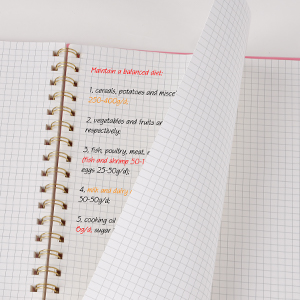 Maintain a balanced diet:
1, cereals, potatoes and
250-400g/d;
2, vegetables and fruits
respectively;
3, fish, poultry, meat,
(fish and shrimp 50-1
eggs 25-50g/d);
4, milk and dairy
50-50g/d;
5, cooking oil
6g/d; sugar